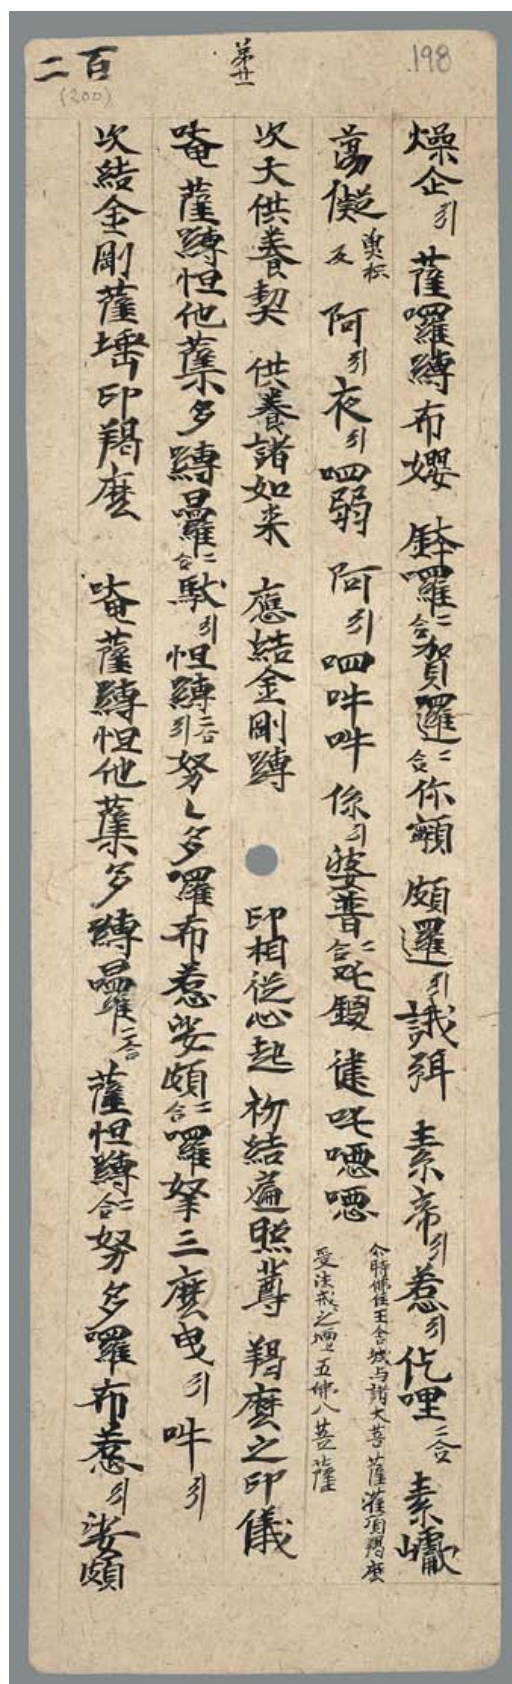 198
第廿一
二百
(200)
燥企引 薩囉嚩布嬰 鉢囉二合賀邏二合你顐 頗邏引誐弭 素帝引惹引仡哩二合 素巘
蕩儗 異枳反 阿引夜引呬弱 阿引呬吽吽 係引婆普二合吒鑁 健吒噁噁 尒時佛住王舍城与諸大菩薩灌頂羯磨
受法戒之壇 五佛八菩薩
次大供養契 供養諸如来 應結金剛縛 印相從心起 初結遍照尊 羯磨之印儀
唵薩縛怛他蘖多嚩日羅二合馱引怛嚩二合引努乀多囉布惹娑頗二合囉拏三麼曳引吽引
次結金剛薩埵印羯磨 唵薩嚩怛他蘖多嚩日羅二合薩怛嚩二合努多囉布惹引娑頗